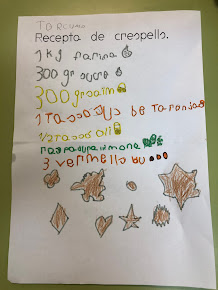 Recepta de crespells.
1 kg farina
300 gr sucre
300 gr saim
1 TASSO SUC DE TARONJA
1/2 TASSO OLI
RASPADURA LIMONA
3 vermells ou